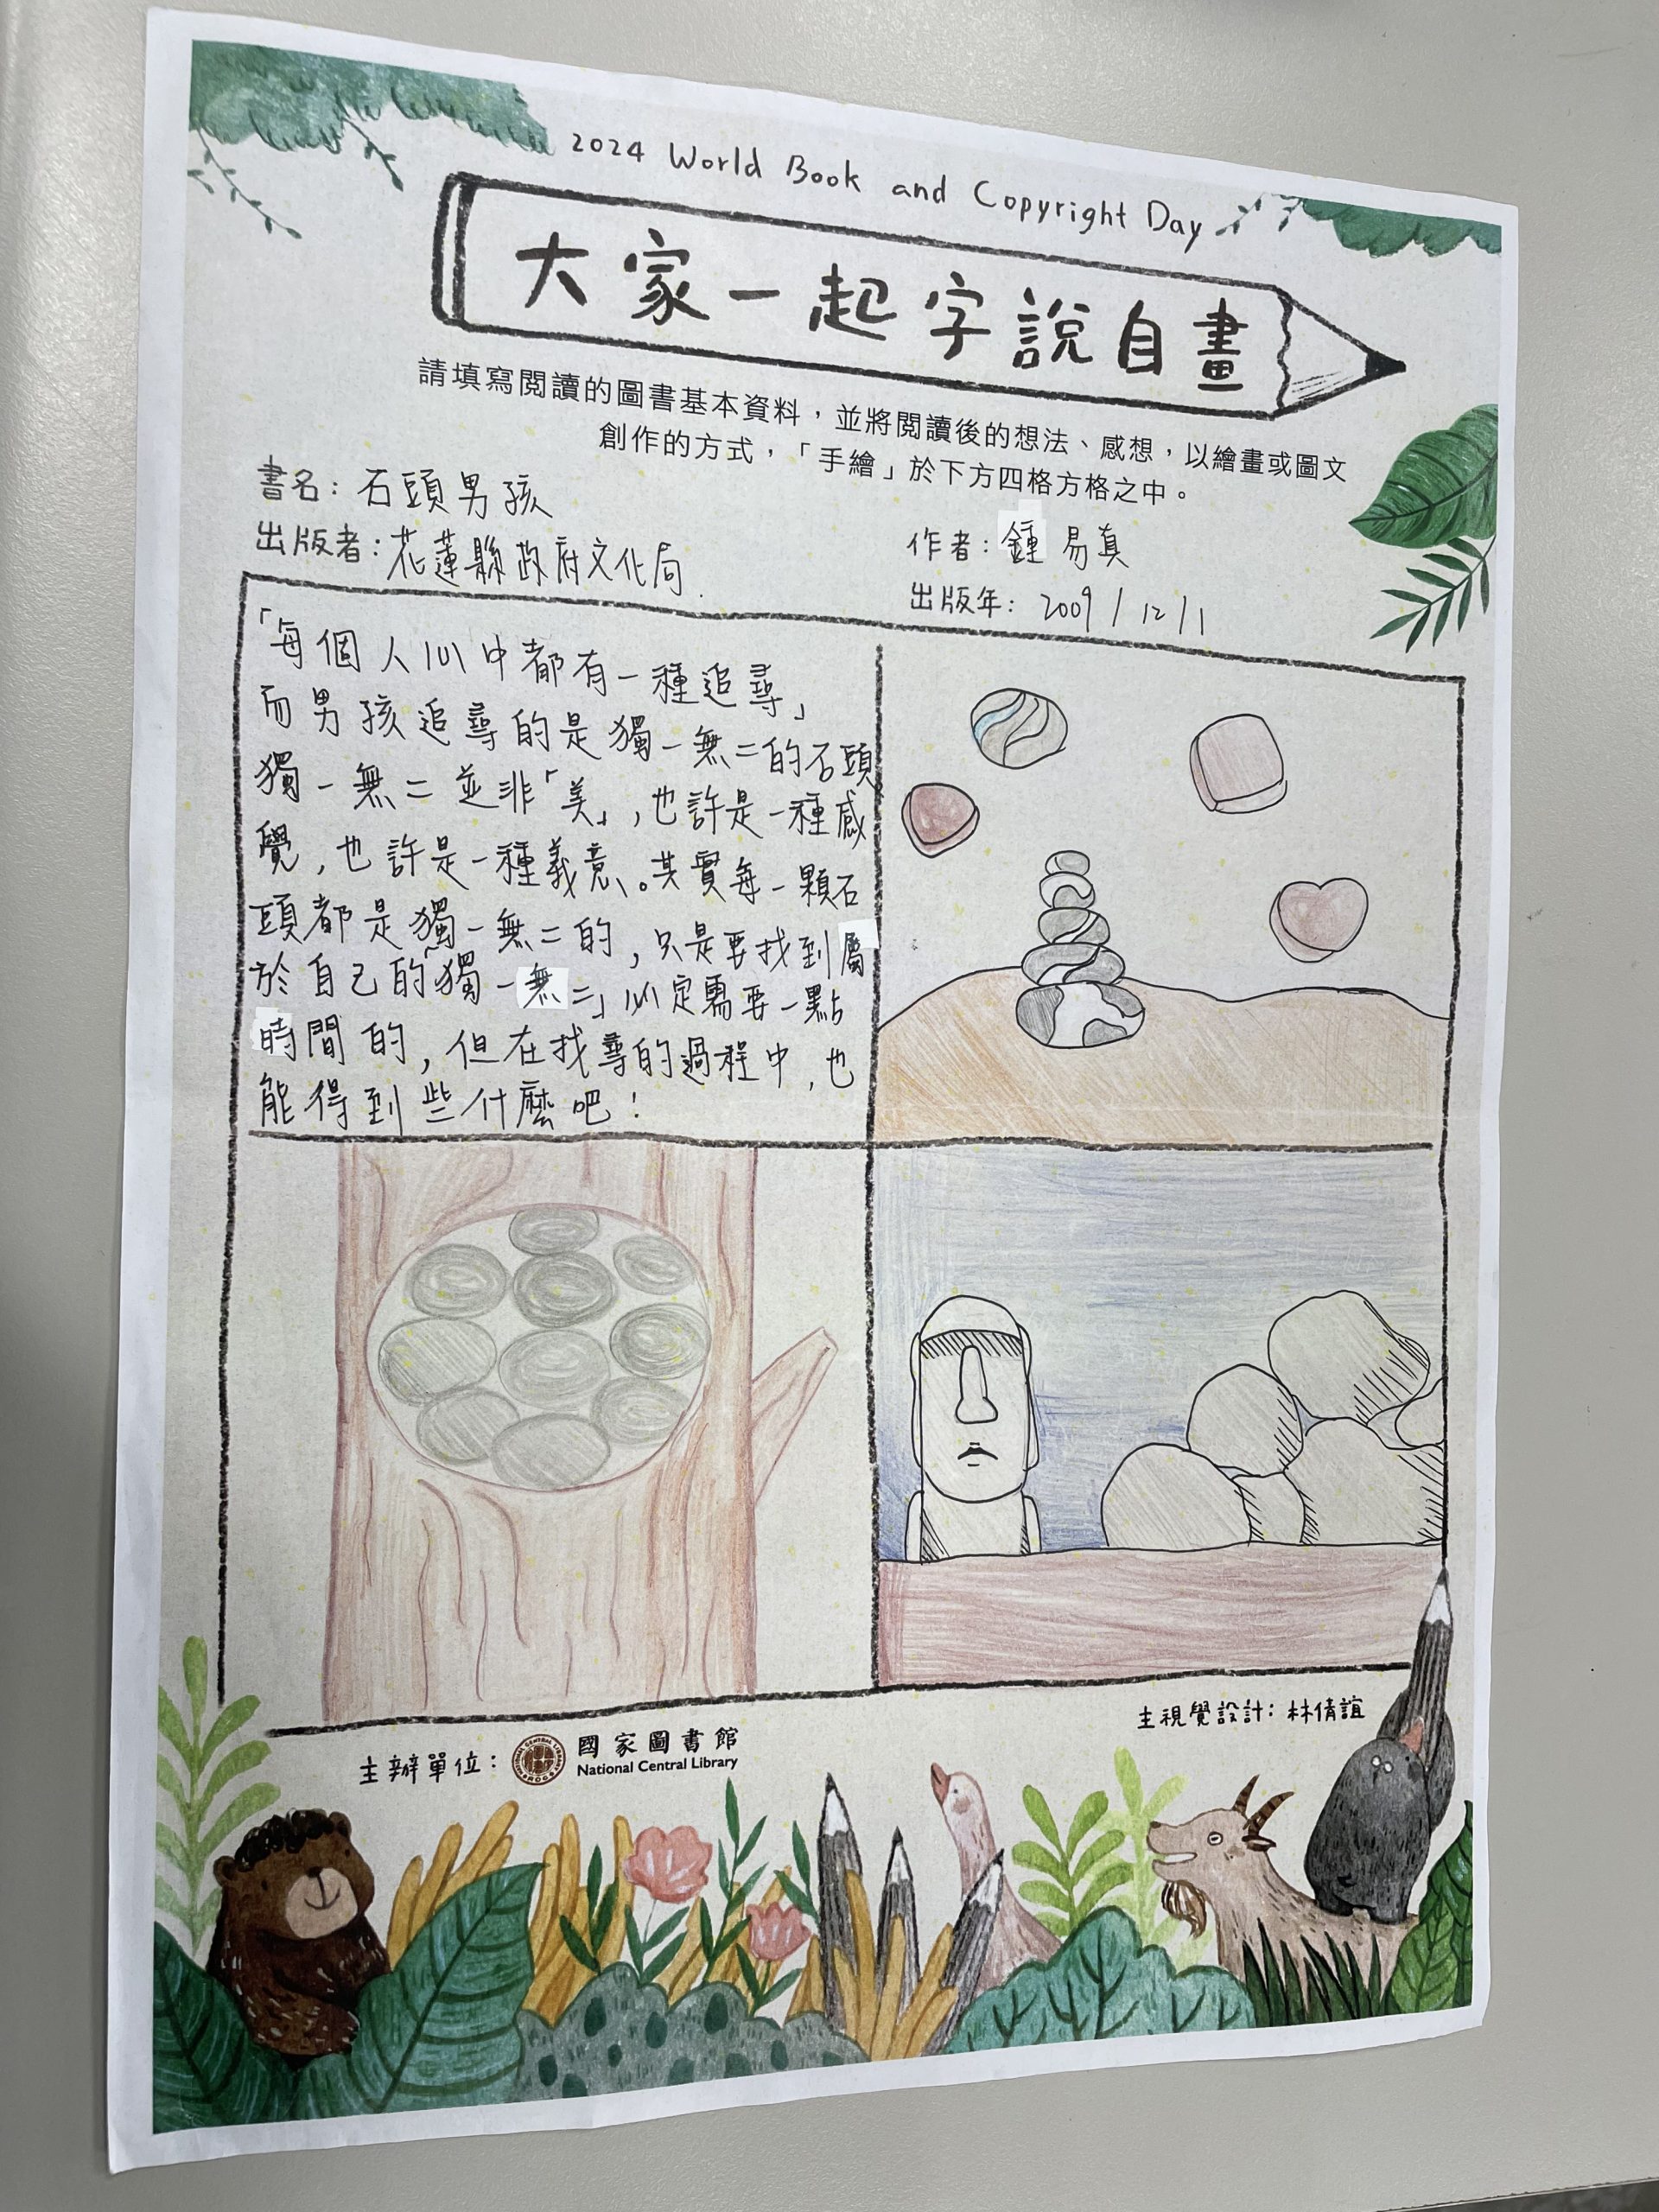 2024 World Book and Copyright Day
大家一起字說自畫
請填寫閱讀的圖書基本資料，並將閱讀後的想法、感想，以繪畫或圖文
創作的方式，「手繪」於下方四格方格之中。
書名：石頭男孩
作者：鍾易真
出版者：花蓮縣政府文化局
出版年：2009/12/1
「每個人心中都有一種追尋」
而男孩追尋的是獨一無二的石頭
獨一無二並非「美」，也許是一種感
覺，也許是一種義意。其實每一顆石
頭都是獨一無二的，只是要找到屬
於自己的「獨一無二」必定需要一點
時間的，但在找尋的過程中，也
能得到些什麼吧！
主視覺設計：林倩誼
主辦單位：
國家圖書館
National Central Library